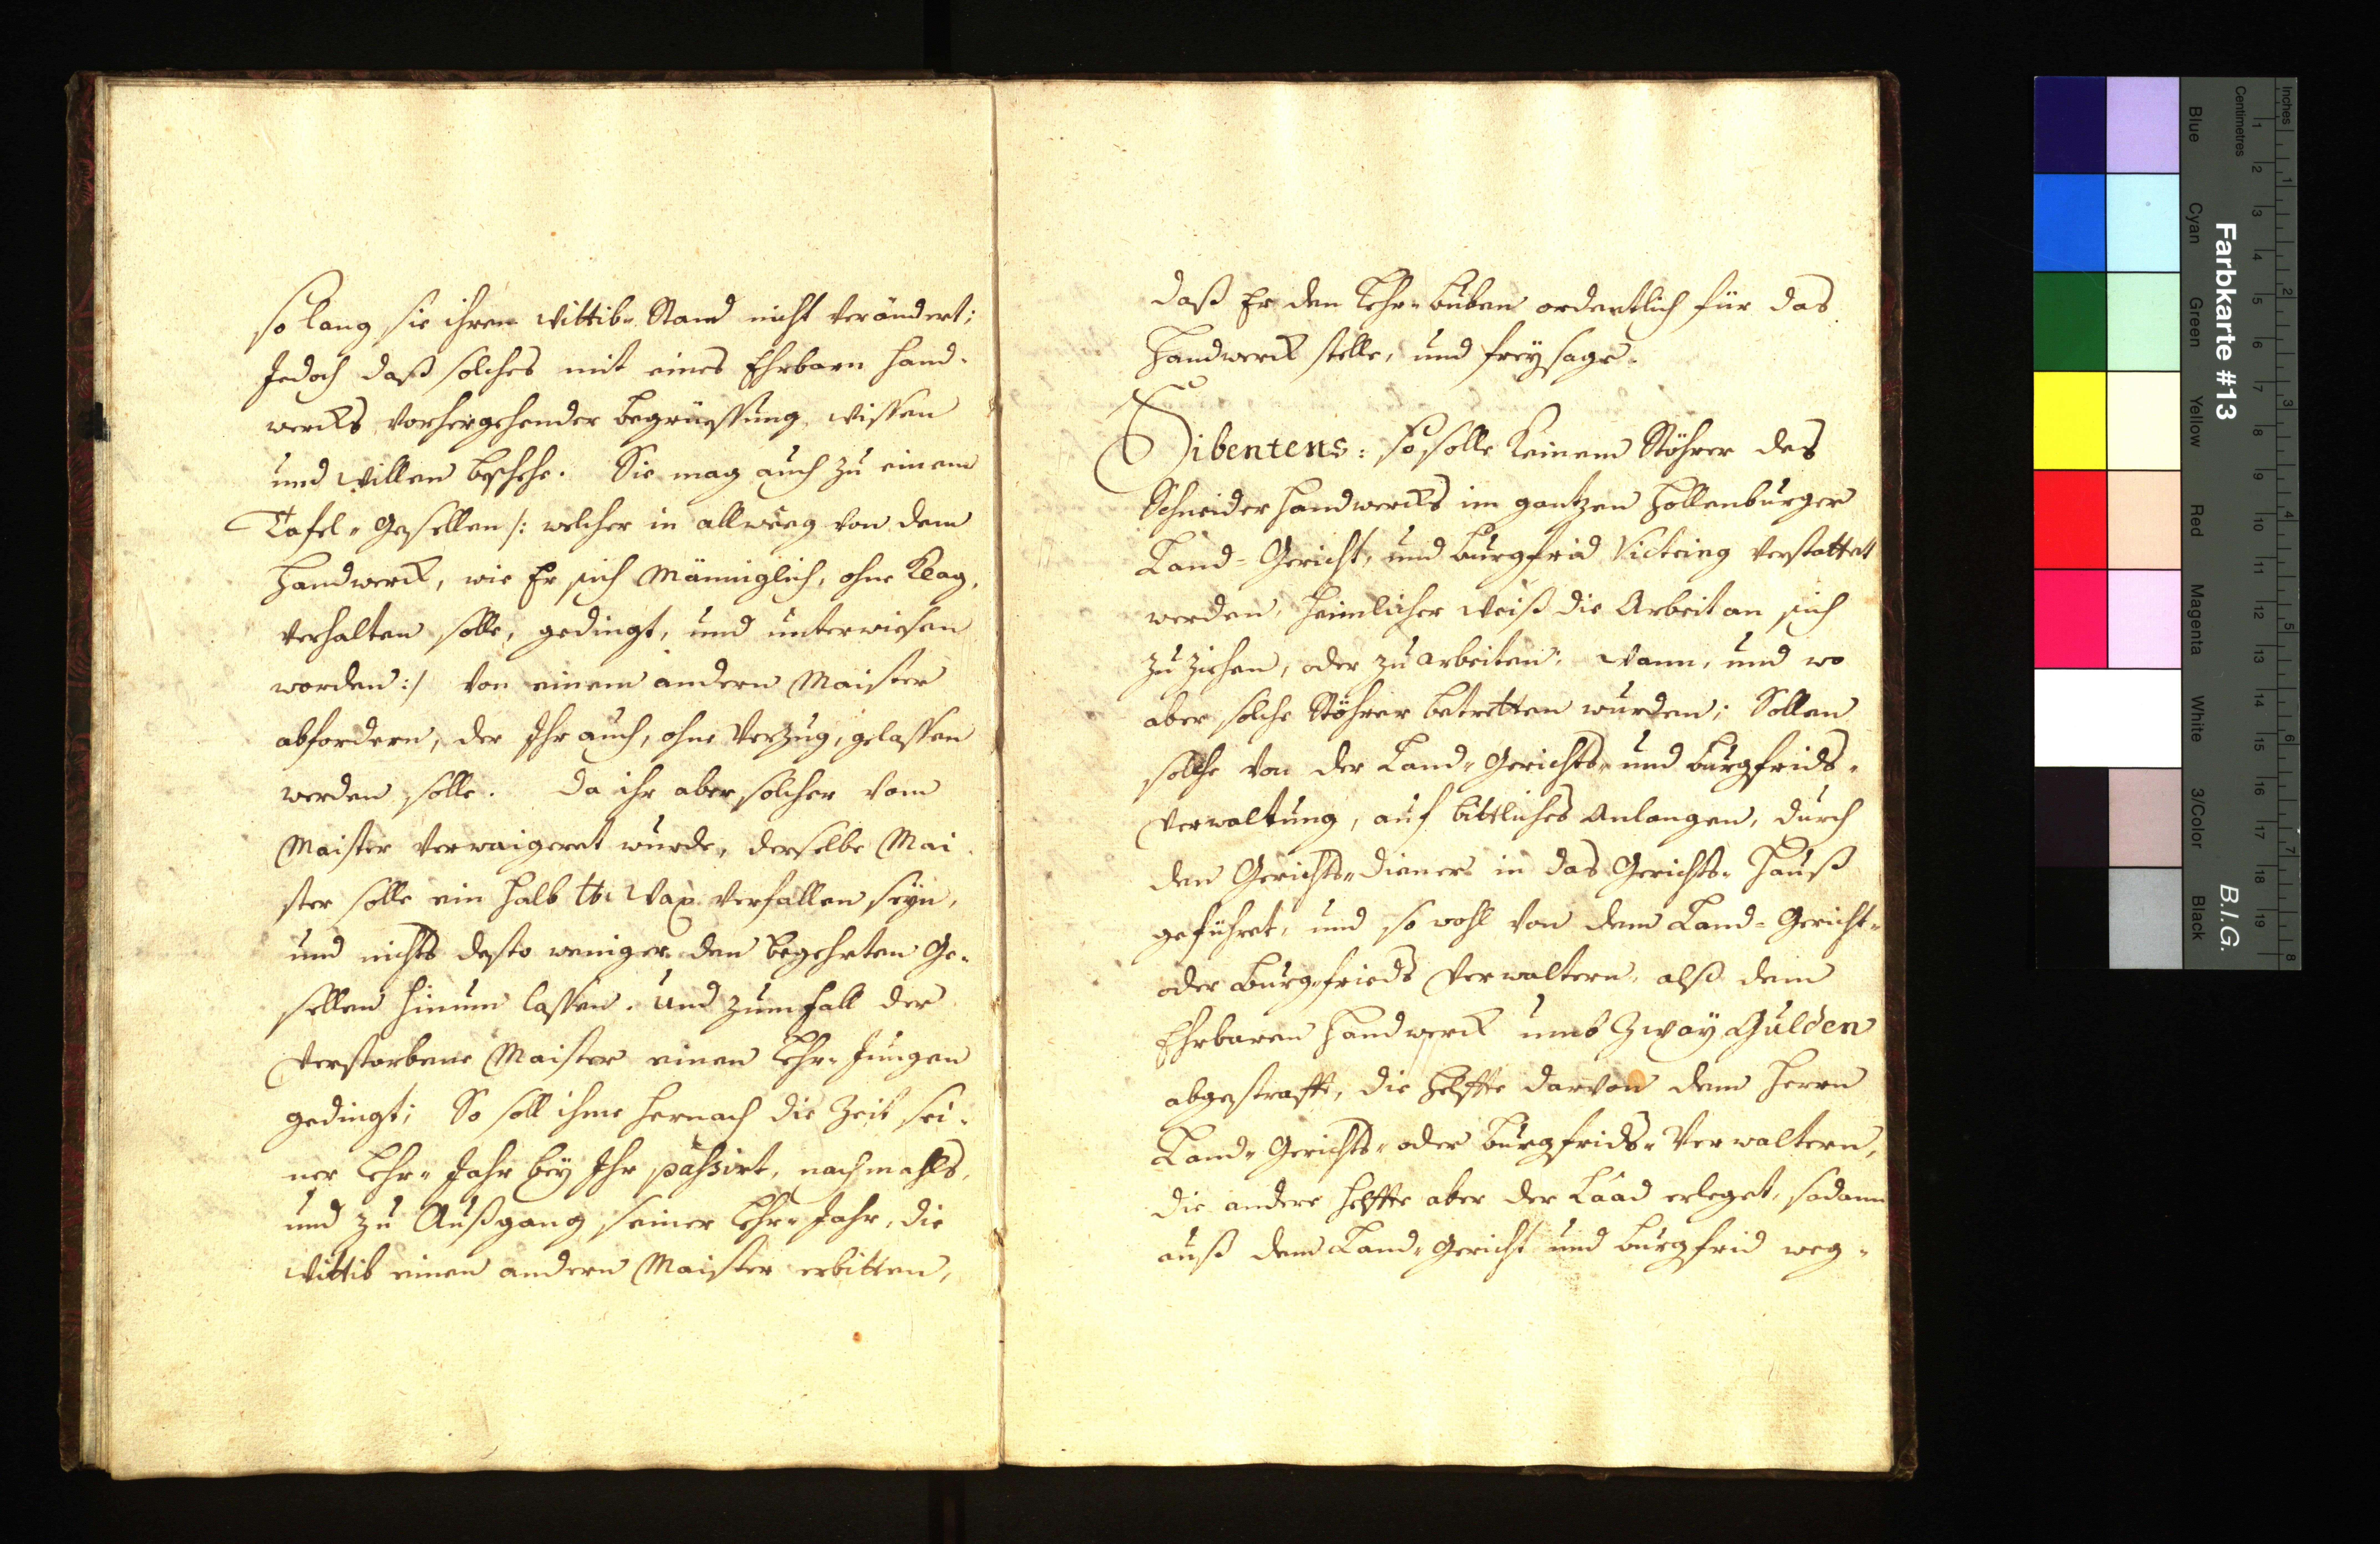 so lang sie ihren Wittib- Stand nicht verändert;
Jedoch daß solches mit eines Ehrbarn Hand-
wercks vorhergehender begrüessung, wissen
und willen beschehe. Sie mag auch zu einem
Tafel- Gesellen /: welcher in allweeg von dem
Handwerck, wie Er sich Männiglich, ohne Klag,
verhalten solle, gedingt, und unterwiesen
worden :/ von einem andern Maister
abfordern, der Ihr auch, ohne Verzug, gelassen
werden solle. Da ihr aber solcher vom
Maister verwaigeret wurde, derselbe Mai-
ster solle ein halb ℔: Wax verfallen seyn,
und nichts desto weniger den begehrten Ge-
sellen hinum lassen. Und zumfall der
verstorbene Maister einen Lehr- Jungen
gedingt; So soll ihme hernach die Zeit sei-
ner Lehr- Jahr bey Ihr passirt, nachmahls,
und zu Außgang seiner Lehr- Jahr, die
Wittib einen andern Maister erbitten,
daß Er den Lehr- buben ordentlich für das
Handwerck stelle, und freysage.
Sibentens: so solle keinem Stöhrer des
Schneider Handwercks im gantzen Hollenburger
Land- Gericht, und burgfrid Victring verstattet
werden, heimlicher weiß die Arbeit an sich
zuziehen, oder zu arbeiten: wann, und wo
aber solche Stöhrer betretten wurden; Sollen
solche von der Land- Gerichts- und burgfrids-
Verwaltung, auf bittliches Anlangen, durch
den Gerichts- dieners in das Gerichts- Hauß
geführet, und so wohl von dem Land- Gericht-
oder Burgfrieds Verwaltern, alß dem
Ehrbaren Handwerck umb Zway Gulden
abgestrafft, die helffte darvon dem Herrn
Land- Gerichts- oder burgfrids- Verwaltern,
die andere helffte aber der Laad erleget, sodann
auß dem Land- Gericht und burgfrid weg-
Farbkarte #13
B.I.G.
Inches
Centimetres
1 2 3 4 5 6 7 8 9 10 11 12 13 14 15 16 17 18 19
1 2 3 4 5 6 7 8
Blue
Cyan
Green
Yellow
Red
Magenta
White
3/Color
Black